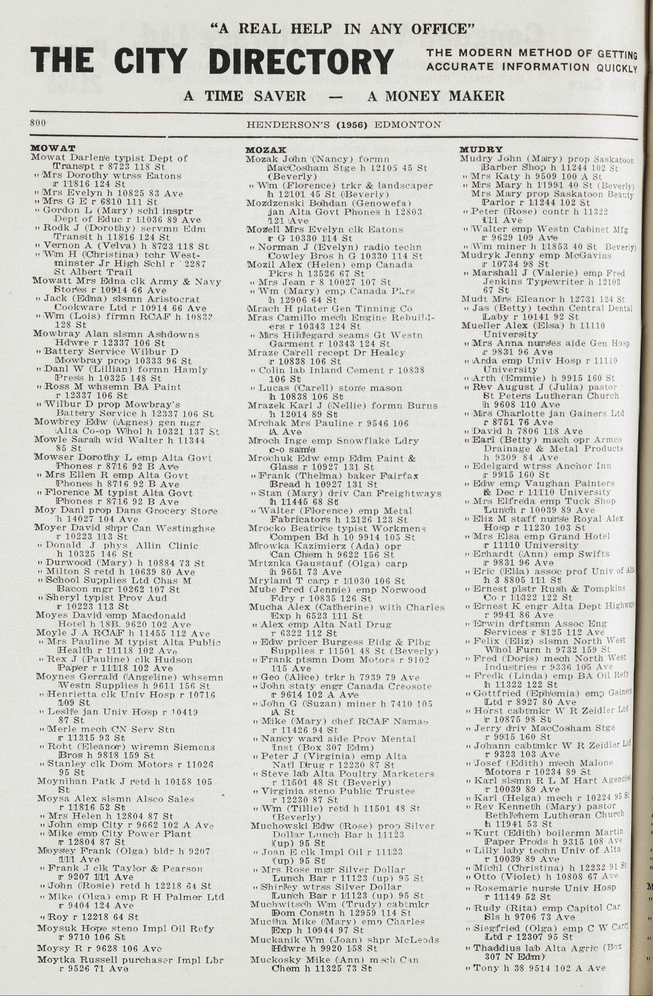 "A REAL HELP IN ANY OFFICE"
THE CITY DIRECTORY
THE MODERN METHOD OF GETTING
ACCURATE INFORMATION QUICKLY
A TIME SAVER — A MONEY MAKER
800
HENDERSON'S (1956) EDMONTON
MOWAT
Mowat Darlene typist Dept of
Transpt r 8723 118 St
" Mrs Dorothy wtrss Eatons
r 11816 124 St
" Mrs Evelyn h 10825 83 Ave
" Mrs G E r 6810 111 St
" Gordon L (Mary) schl insptr
Dept of Educ r 11036 89 Ave
" Rodk J (Dorothy) servmn Edm
Transit h 11816 124 St
" Vernon A (Velva) h 8723 118 St
" Wm H (Christina) tchr West-
minster Jr High Schl r 2287
St Albert Trail
Mowatt Mrs Edna clk Army & Navy
Stores r 10914 66 Ave
" Jack (Edna) slsmn Aristocrat
Cookware Ltd r 10914 66 Ave
" Wm (Lois) firmn RCAF h 10832
128 St
Mowbray Alan slsmn Ashdowns
Hdwre r 12337 106 St
" Battery Service Wilbur D
Mowbray prop 10333 96 St
" Danl W (Lillian) formn Hamly
Press h 10325 148 St
" Ross M whsemn BA Paint
r 12337 106 St
" Wilbur D prop Mowbray's
Battery Service h 12337 106 St
Mowbrey Edw (Agnes) gen mgr
Alta Co-op Whol h 10321 137 St
Mowle Sarah wid Walter h 11344
85 St
Mowser Dorothy L emp Alta Govt
Phones r 8716 92 B Ave
" Mrs Ellen R emp Alta Govt
Phones h 8716 92 B Ave
" Florence M typist Alta Govt
Phones r 8716 92 B Ave
Moy Danl prop Dans Grocery Store
h 14027 104 Ave
Moyer David shpr Can Westinghse
r 10223 113 St
" Donald J phys Allin Clinic
h 10325 146 St
" Durwood (Mary) h 10884 73 St
" Milton S retd h 10639 80 Ave
" School Supplies Ltd Chas M
Bacon mgr 10262 107 St
" Sheryl typist Prov Aud
r 10223 113 St
Moyes David emp Macdonald
Hotel h 18B, 9620 102 Ave
Moyle J A RCAF h 11455 112 Ave
" Mrs Pauline M typist Alta Public
Health r 11118 102 Ave
" Rex J (Pauline) clk Hudson
Paper r 11118 102 Ave
Moynes Gerald (Angeline) whsemn
Westn Supplies h 9611 156 St
" Henrietta clk Univ Hosp r 10716
109 St
" Leslie jan Univ Hosp r 10419
87 St
" Merle mech CN Serv Stn
r 11315 93 St
" Robt (Eleanor) wiremn Siemens
Bros h 9818 159 St
" Stanley clk Dom Motors r 11026
95 St
Moynihan Patk J retd h 10158 105
St
Moysa Alex slsmn Alsco Sales
r 11816 52 St
" Mrs Helen h 12804 87 St
" John emp City r 9662 102 A Ave
" Mike emp City Power Plant
r 12804 87 St
Moysey Frank (Olga) bldr h 9207
111 Ave
" Frank J clk Taylor & Pearson
r 9207 111 Ave
" John (Rosie) retd h 12218 64 St
" Mike (Olga) emp R H Palmer Ltd
r 9404 124 Ave
" Roy r 12218 64 St
Moysuk Hope steno Impl Oil Refy
r 9710 106 St
Moysy R r 9628 106 Ave
Moytka Russell purchaser Impl Lbr
r 9526 71 Ave
MOZAK
Mozak John (Nancy) formn
MacCosham Stge h 12105 45 St
(Beverly)
" Wm (Florence) trkr & landscaper
h 12101 45 St (Beverly)
Mozdzenski Bohdan (Genowefa)
jan Alta Govt Phones h 12803
121 Ave
Mozell Mrs Evelyn clk Eatons
r G 10330 114 St
" Norman J (Evelyn) radio techn
Cowley Bros h G 10330 114 St
Mozil Alex (Helen) emp Canada
Pkrs h 13526 67 St
" Mrs Jean r 8 10027 107 St
" Wm (Mary) emp Canada Pkrs
h 12906 64 St
Mrach H plater Gen Tinning Co
Mras Camillo mech Engine Rebuild-
ers r 10343 124 St
" Mrs Hildegard seams Gt Westn
Garment r 10343 124 St
Mraze Carell recept Dr Healey
r 10838 106 St
" Colin lab Inland Cement r 10838
106 St
" Lucas (Carell) stone mason
h 10838 106 St
Mrazek Karl J (Nellie) formn Burns
h 12014 89 St
Mrchak Mrs Pauline r 9546 106
A Ave
Mroch Inge emp Snowflake Ldry
c-o same
Mrochuk Edw emp Edm Paint &
Glass r 10927 131 St
" Frank (Thelma) baker Fairfax
Bread h 10927 131 St
" Stan (Mary) driv Can Freightways
h 11445 68 St
" Walter (Florence) emp Metal
Fabricators h 12126 123 St
Mrocko Beatrice typist Workmens
Compen Bd h 10 9914 105 St
Mrowka Kazimierz (Ada) opr
Can Chem h 9622 156 St
Mrtznka Gaustauf (Olga) carp
h 9651 73 Ave
Mryland T carp r 11030 106 St
Mube Fred (Jennie) emp Norwood
Fdry r 10835 126 St
Mucha Alex (Catherine) with Charles
Exp h 6523 111 St
" Alex emp Alta Natl Drug
r 6322 112 St
" Edw pricer Burgess Bldg & Plbg
Supplies r 11501 48 St (Beverly)
" Frank ptsmn Dom Motors r 9102
115 Ave
" Geo (Alice) trkr h 7939 79 Ave
" John staty engr Canada Creosote
r 9614 102 A Ave
" John G (Suzan) miner h 7410 105
A St
" Mike (Mary) chef RCAF Namao
r 11426 94 St
" Nancy ward aide Prov Mental
Inst (Box 307 Edm)
" Peter J (Virginia) emp Alta
Natl Drug r 12230 87 St
" Steve lab Alta Poultry Marketers
r 11501 48 St (Beverly)
" Virginia steno Public Trustee
r 12230 87 St
" Wm (Tillie) retd h 11501 48 St
(Beverly)
Muchowski Edw (Rose) prop Silver
Dollar Lunch Bar h 11123
(up) 95 St
" Joan E clk Impl Oil r 11123
(up) 95 St
" Mrs Rose mgr Silver Dollar
Lunch Bar r 11123 (up) 95 St
" Shirley wtrss Silver Dollar
Lunch Bar r 11123 (up) 95 St
Muchwitsch Wm (Trudy) cabtmkr
Dom Constn h 12959 114 St
Muctha Mike (Mary) emp Charles
Exp h 10944 97 St
Muckanik Wm (Joan) shpr McLeods
Hdwre h 9920 158 St
Muckosky Mike (Ann) mech Can
Chem h 11325 73 St
MUDRY
Mudry John (Mary) prop Saskatoon
Barber Shop h 11244 102 St
" Mrs Katy h 9509 100 A St
" Mrs Mary h 11991 40 St (Beverly)
Mrs Mary prop Saskatoon Beauty
Parlor r 11244 102 St
" Peter (Rose) contr h 11322
111 Ave
" Walter emp Westn Cabinet Mfg
r 9629 109 Ave
" Wm miner h 11853 40 St Beverly)
Mudryk Jenny emp McGavins
r 10734 98 St
" Marshall J (Valerie) emp Fred
Jenkins Typewriter h 12103
67 St
Mudt Mrs Eleanor h 12731 124 St
" Jas (Betty) techn Central Dental
Laby r 10141 92 St
Mueller Alex (Elsa) h 11110
University
" Mrs Anna nurses aide Gen Hosp
r 9831 96 Ave
" Arda emp Univ Hosp r 11110
University
" Arth (Emmie) h 9915 160 St
" Rev August J (Julia) pastor
St Peters Lutheran Church
h 9608 110 Ave
" Mrs Charlotte jan Gainers Ltd
r 8751 76 Ave
" David h 7806 118 Ave
" Earl (Betty) mach opr Armco
Drainage & Metal Products
h 9309 84 Ave
" Edelgard wtrss Anchor Inn
r 9915 160 St
" Edw emp Vaughan Painters
& Dec r 11110 University
" Mrs Elfreda emp Tuck Shop
Lunch r 10039 89 Ave
" Eliz M staff nurse Royal Alex
Hosp r 11230 103 St
" Mrs Elsa emp Grand Hotel
r 11110 University
" Erhardt (Ann) emp Swifts
r 9831 96 Ave
" Eric (Ella) assoc prof Univ of Alta
h 3 8805 111 St
" Ernest plstr Rush & Tompkins
Co r 11322 122 St
" Ernest K engr Alta Dept Highways
r 9941 86 Ave
" Erwin drftsmn Assoc Eng
Services r 8125 112 Ave
" Felix (Eliz) slsmn North West
Whol Furn h 9732 159 St
" Fred (Doris) mech North West
Industries r 9336 105 Ave
" Fredk (Linda) emp BA Oil Refy
h 11322 122 St
" Gottfried (Ephemia) emp Gainers
Ltd r 8927 80 Ave
" Horst cabtmkr W R Zeidler Ltd
r 10875 98 St
" Jerry driv MacCosham Stge
r 9915 160 St
" Johann cabtmkr W R Zeidler Ltd
r 9323 103 Ave
" Josef (Edith) mech Malone
Motors r 10234 89 St
" Karl slsmn R L M Hart Agencies
r 10039 89 Ave
" Karl (Helga) mech r 10224 95 St
" Rev Kenneth (Mary) pastor
Bethlehem Lutheran Church
h 11941 53 St
" Kurt (Edith) boilermn Martin
Paper Prods h 9315 108 Ave
" Lilly laby techn Univ of Alta
r 10039 89 Ave
" Michl (Christina) h 12232 91 St
" Otto (Violet) h 10808 67 Ave
" Rosemarie nurse Univ Hosp
r 11149 52 St
" Rudy (Rita) emp Capitol Car
Sls h 9706 73 Ave
" Siegfried (Olga) emp C W Carry
Ltd r 12307 95 St
" Thaddius lab Alta Agric (Box
307 N Edm)
" Tony h 38 9514 102 A Ave